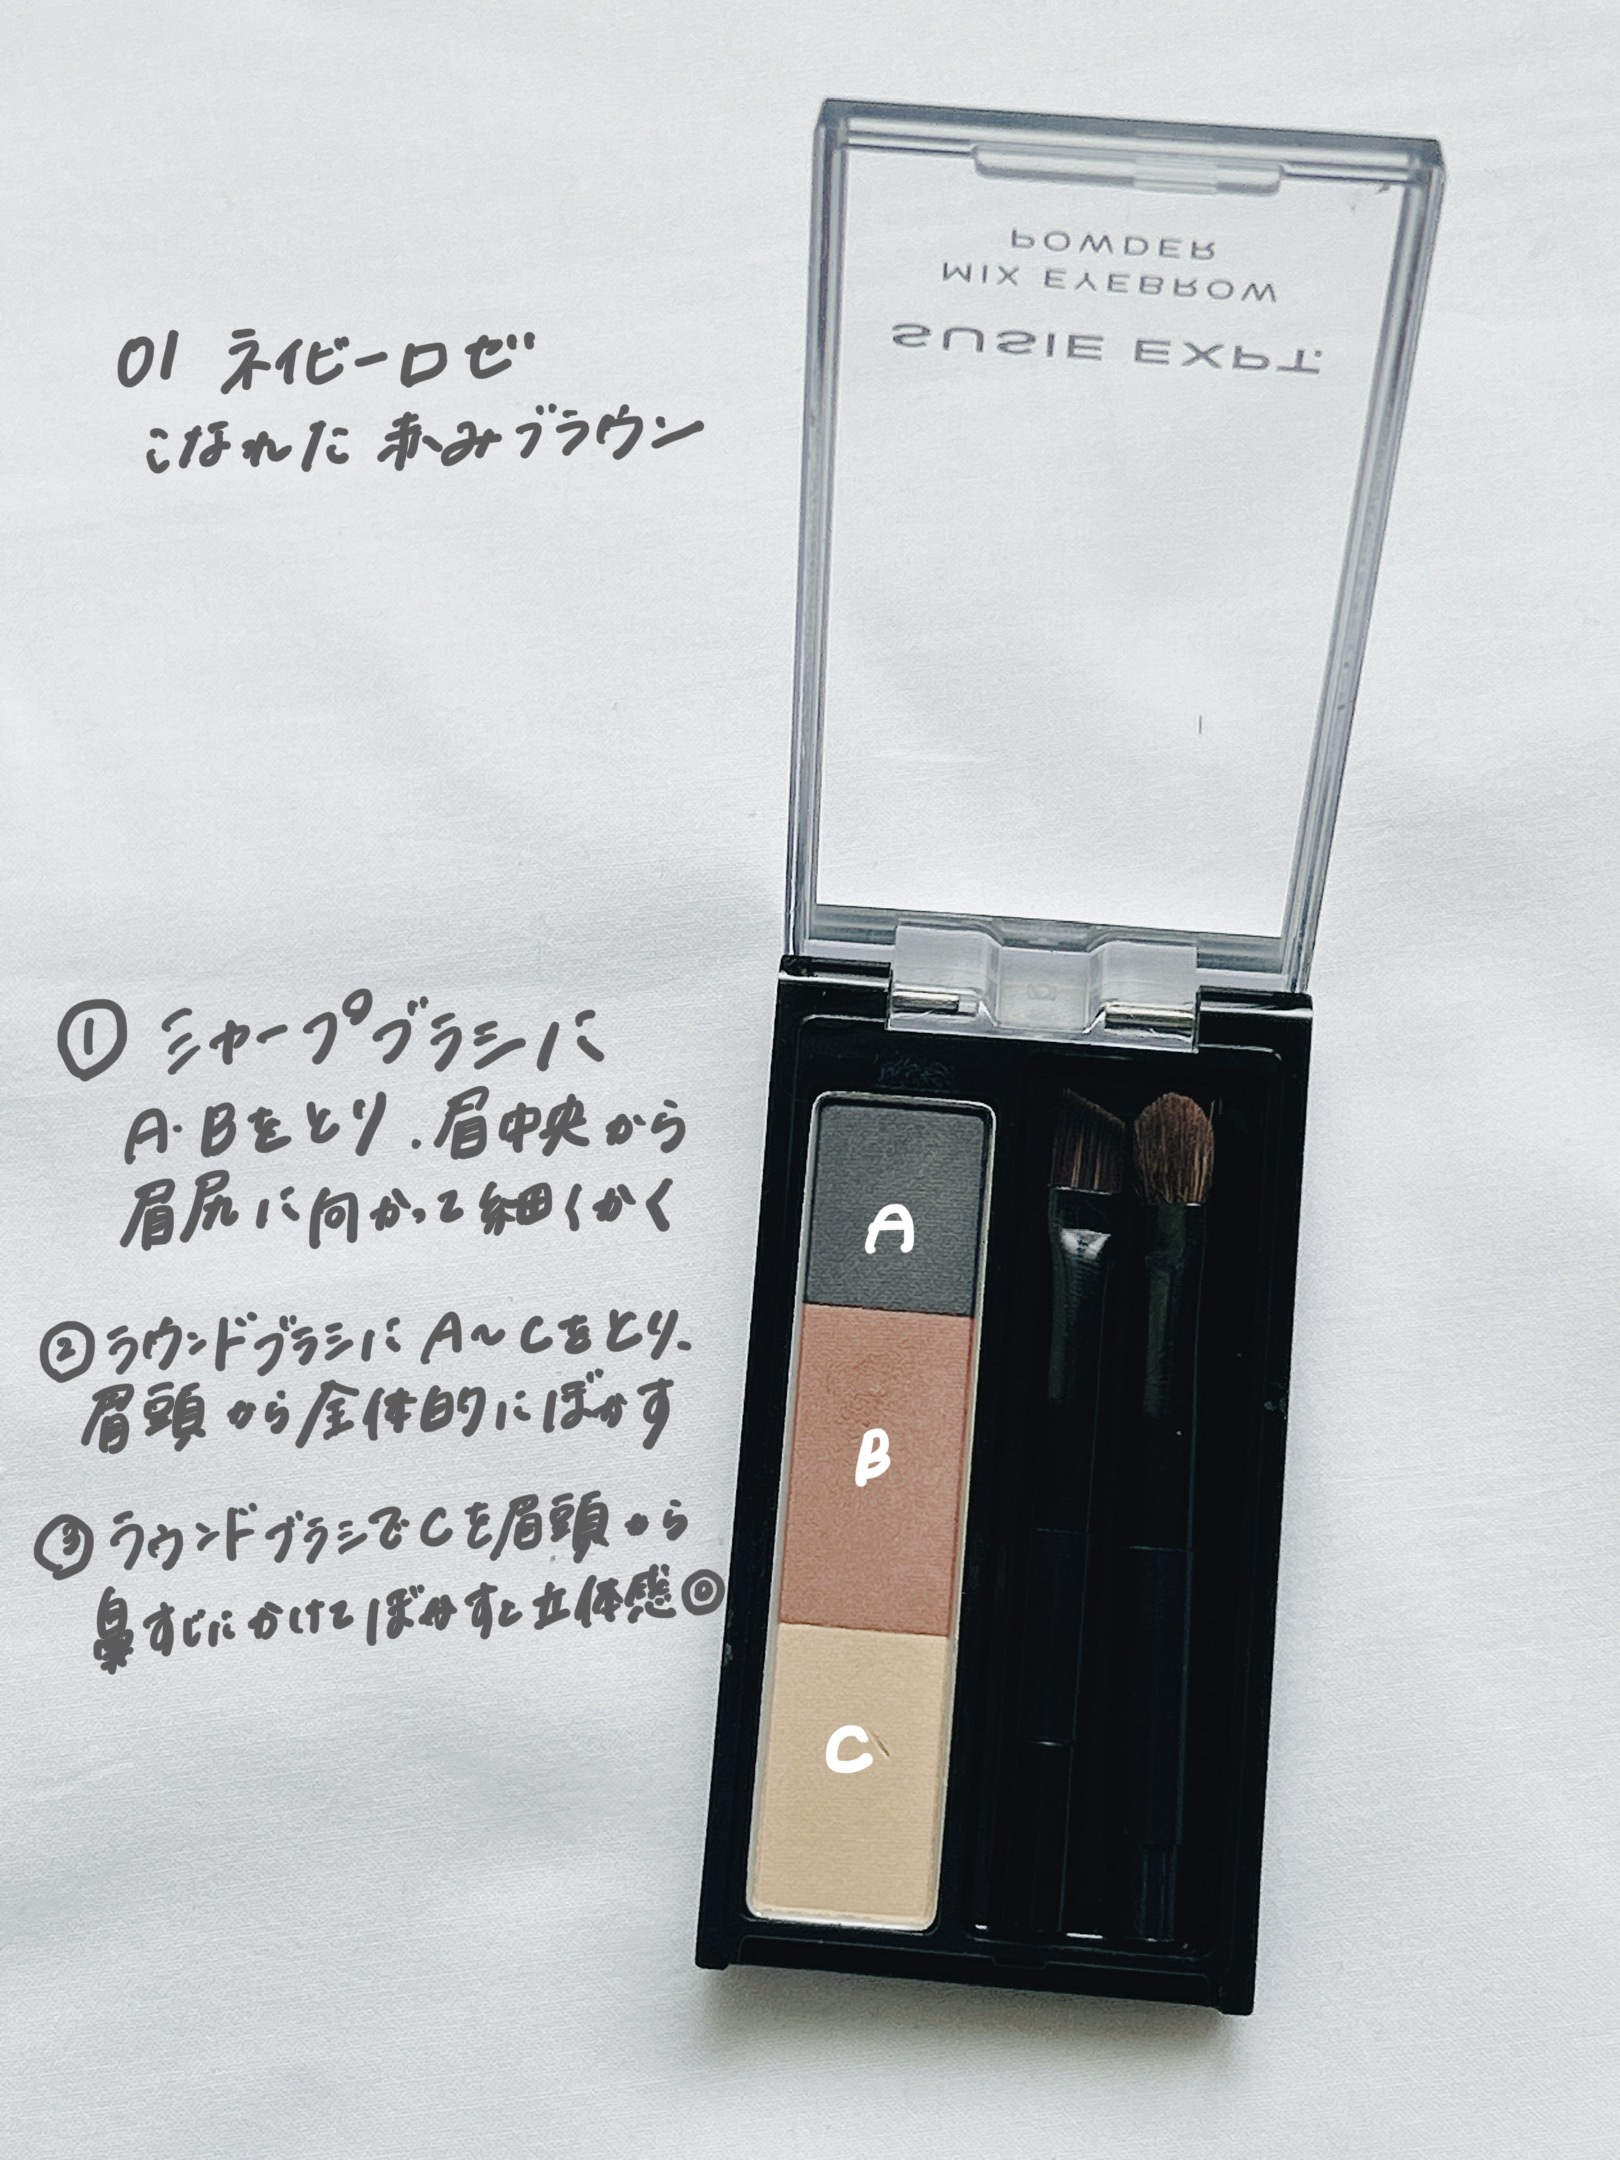 POWDER
MIX EYEBROW
SUSIE EXPT.
01 ネイビーロゼ
こなれた 赤みブラウン
① シャープブラシに
A・Bをとり、眉中央から
眉尻に向かって細くかく
②ラウンドブラシにA~Cをとり、
眉頭から全体的にぼかす
③ラウンドブラシでCを眉頭から
鼻すじにかけてぼかすと立体感◎
A
B
C